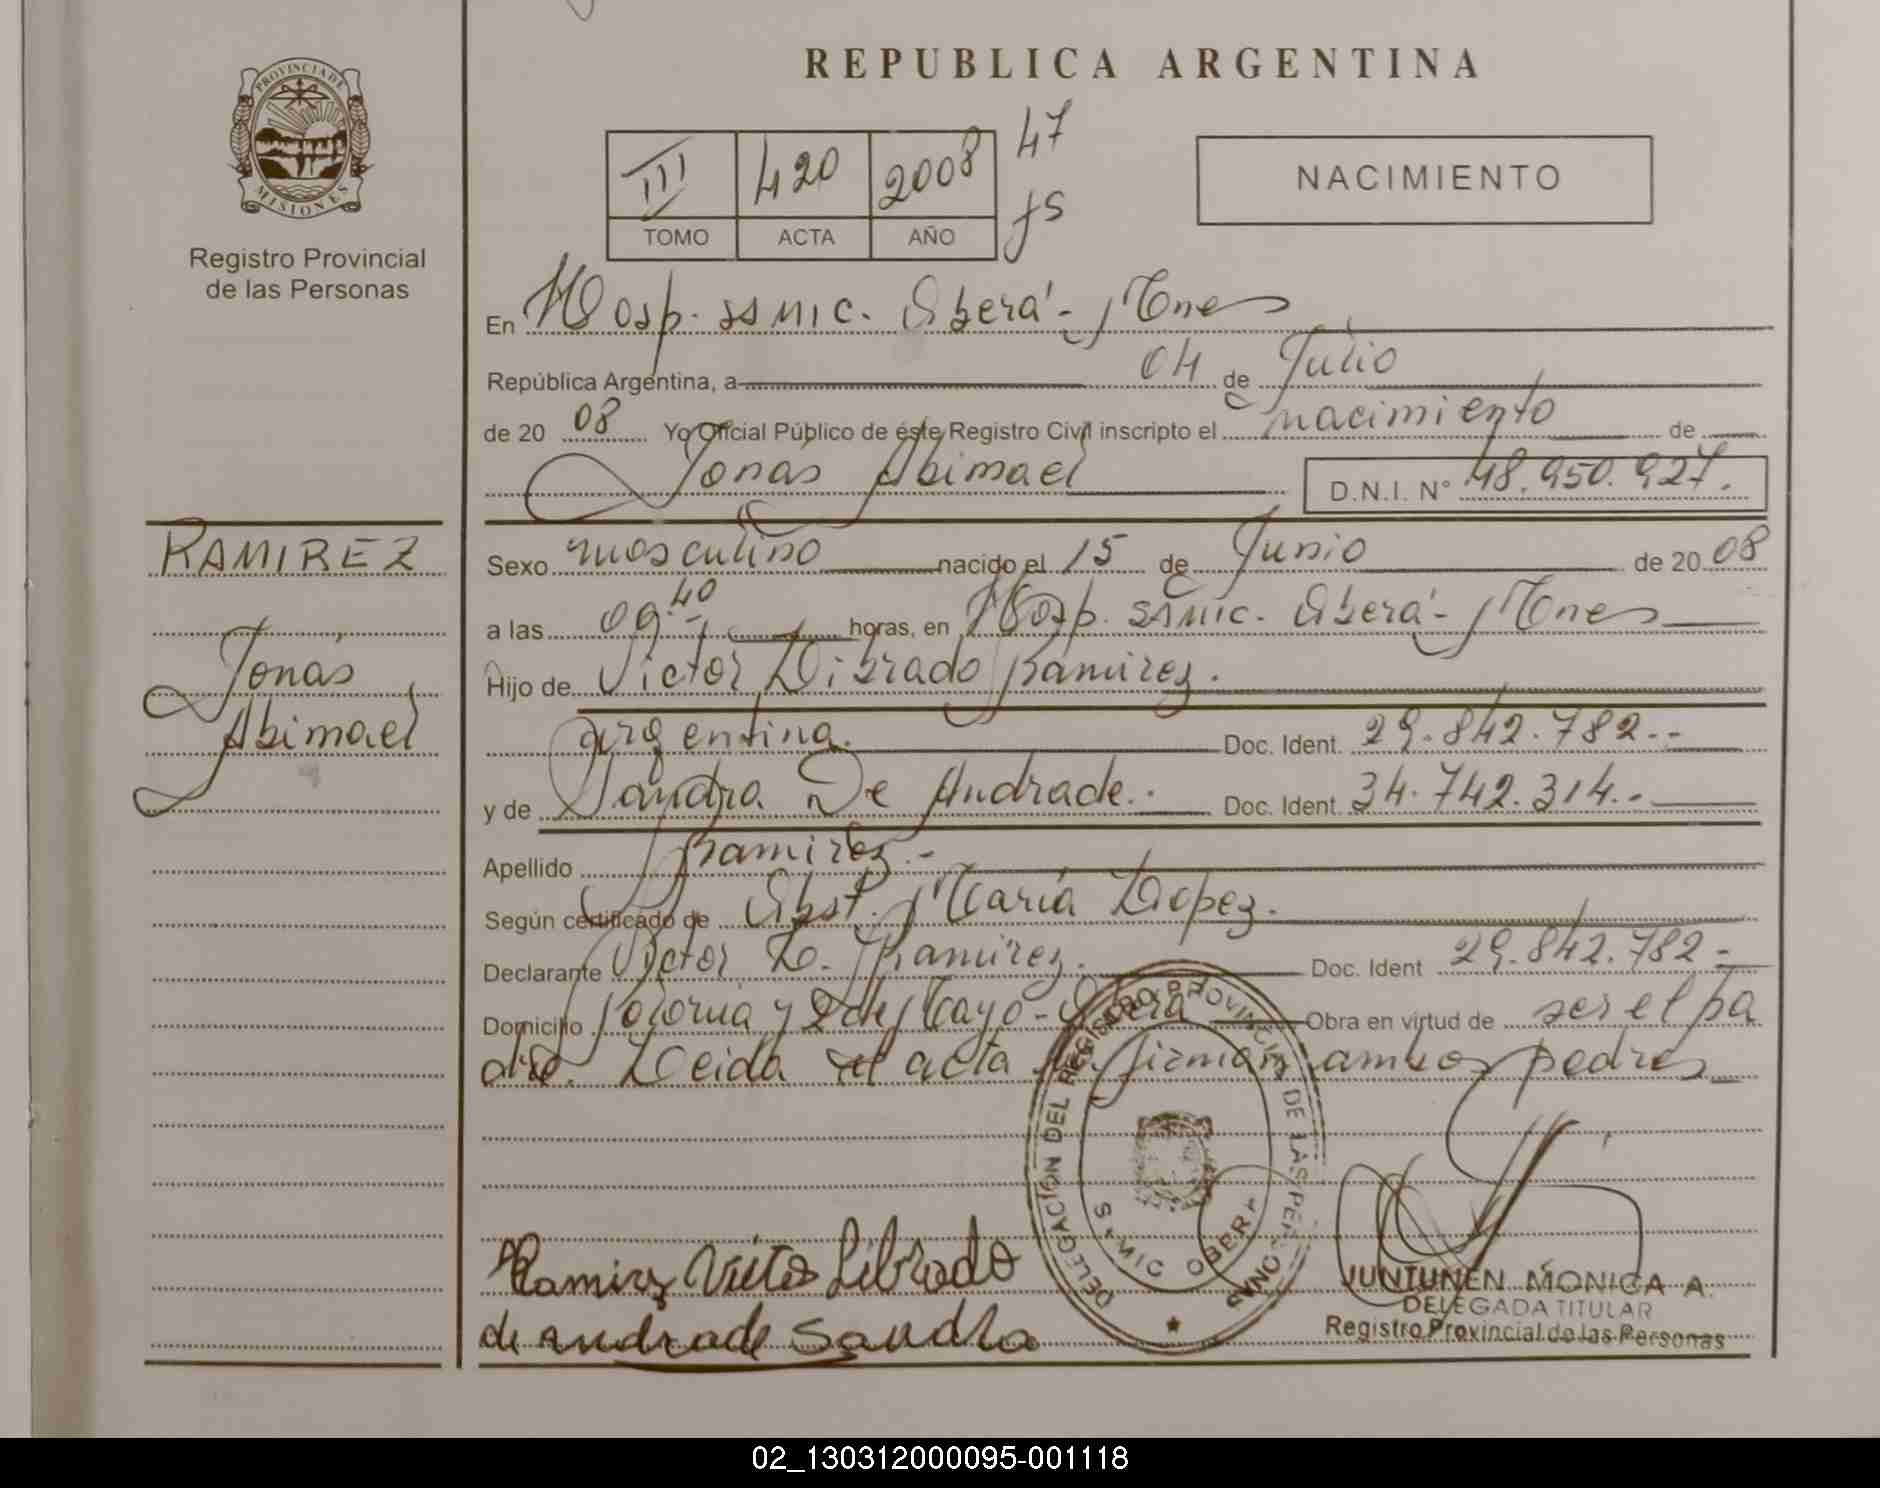 REPUBLICA ARGENTINA
PROVINCIA DE
MISIONES
Registro Provincial
de las Personas
III 420 2008 47
TOMO ACTA AÑO
NACIMIENTO
En Hosp. SSMIC. Oberá - Mnes
República Argentina, a 04 de Julio
de 20 08 Yo Oficial Público de éste Registro Civil inscripto el nacimiento de
Jonás Abimael D.N.I. N° 48.950.927.
RAMIREZ
Jonás
Abimael
Sexo masculino nacido el 15 de Junio de 20 08
a las 09.40 horas, en Hosp. SSMIC. Oberá - Mnes
Hijo de Victor Librado Ramirez.
argentina. Doc. Ident. 29.842.782.-
y de Sandra De Andrade.- Doc. Ident. 34.742.314.-
Apellido Ramirez.-
Según certificado de Obst. María Lopez.
Declarante Victor L. Ramirez. Doc. Ident 29.842.782-
Domicilio y 2 de Mayo - Oberá Obra en virtud de ser el pa
dre. Leida el acta firman ambos padres
DELEGACIÓN DEL REGISTRO PROVINCIAL DE LAS PERSONAS
OBERA
Ramirez Victor Librado
de andrade Sandra
JUNTUNEN MONICA A.
DELEGADA TITULAR
Registro Provincial de las Personas
02_130312000095-001118